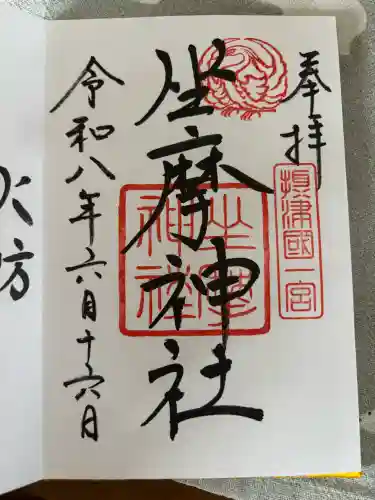 奉拝
摂津國一宮
坐摩神社
坐摩神社
令和八年六月十六日
方